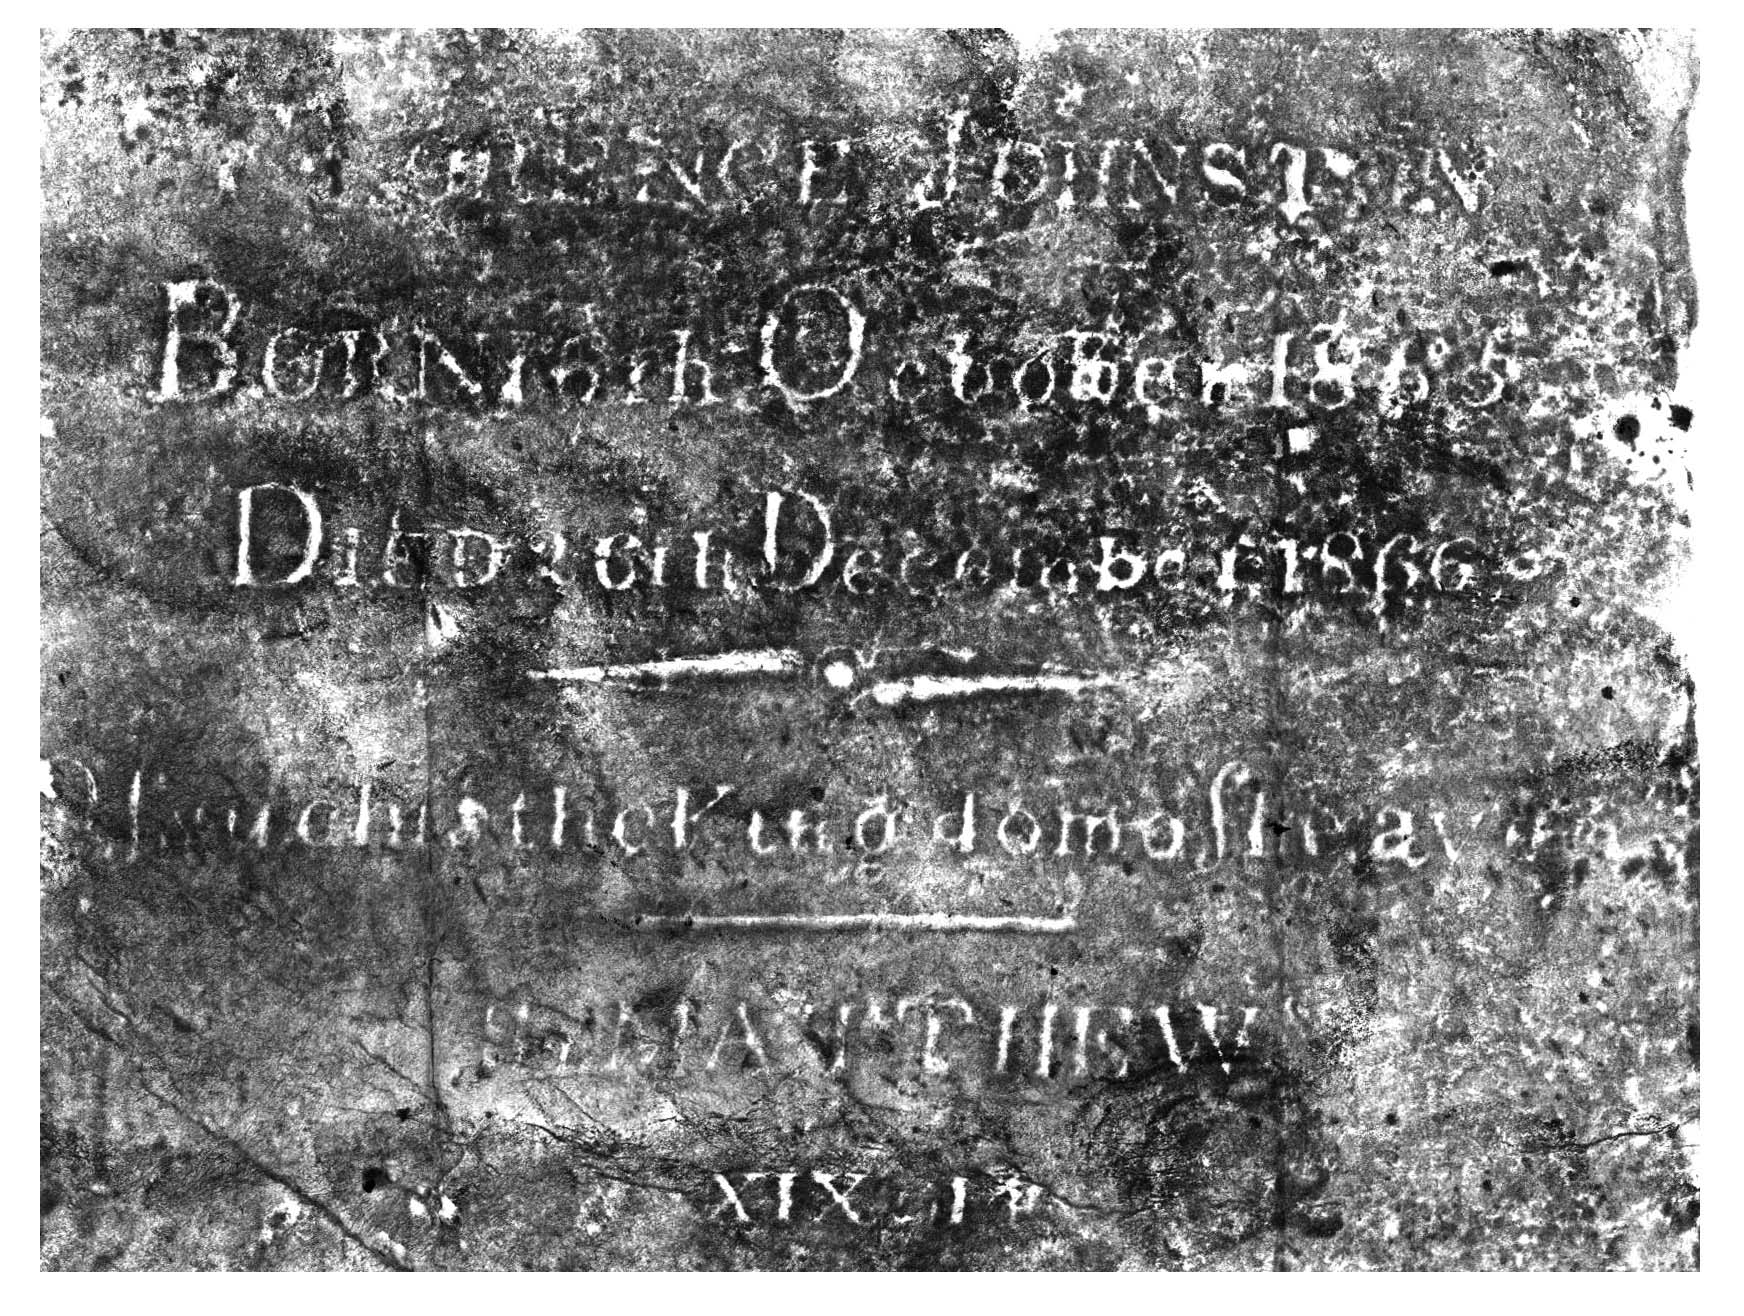 FLORENCE JOHNSTON
BORN 16th October 1865
DIED 26th December 1866
Of such is the Kingdom of Heaven
S. MATTHEW
XIX. 14